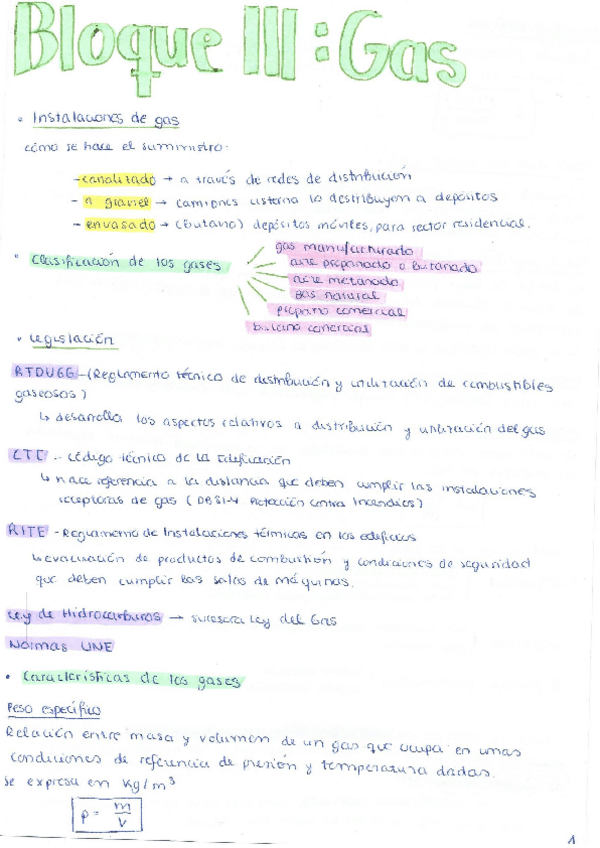 Bloque III: Gas
• Instalaciones de gas
cómo se hace el suministro:
- canalizado → a través de redes de distribución
- a granel → camiones cisterna lo distribuyen a depósitos
- envasado → (butano) depósitos móviles, para sector residencial.
• Clasificación de los gases
gas manufacturado
aire propanado o butanado
aire metanado
gas natural
propano comercial
butano comercial
• Legislación
RTDUGG - (Reglamento técnico de distribución y utilización de combustibles
gaseosos)
↳ desarrolla los aspectos relativos a distribución y utilización del gas
CTE - Código técnico de la Edificación
↳ hace referencia a la distancia que deben cumplir las instalaciones
receptoras de gas (DBSI-4 Protección contra Incendios)
RITE - Reglamento de Instalaciones térmicas en los edificios
↳ evacuación de productos de combustión y condiciones de seguridad
que deben cumplir las salas de máquinas.
Ley de Hidrocarburos → sucesora Ley del Gas
Normas UNE
• Características de los gases
Peso específico
Relación entre masa y volumen de un gas que ocupa en unas
condiciones de referencia de presión y temperatura dadas.
se expresa en Kg/m³
ρ = m/V
1